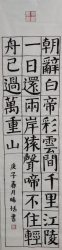 朝辭白帝彩雲間千里江陵
一日還兩岸猿聲啼不住輕
舟已過萬重山
庚子春月書